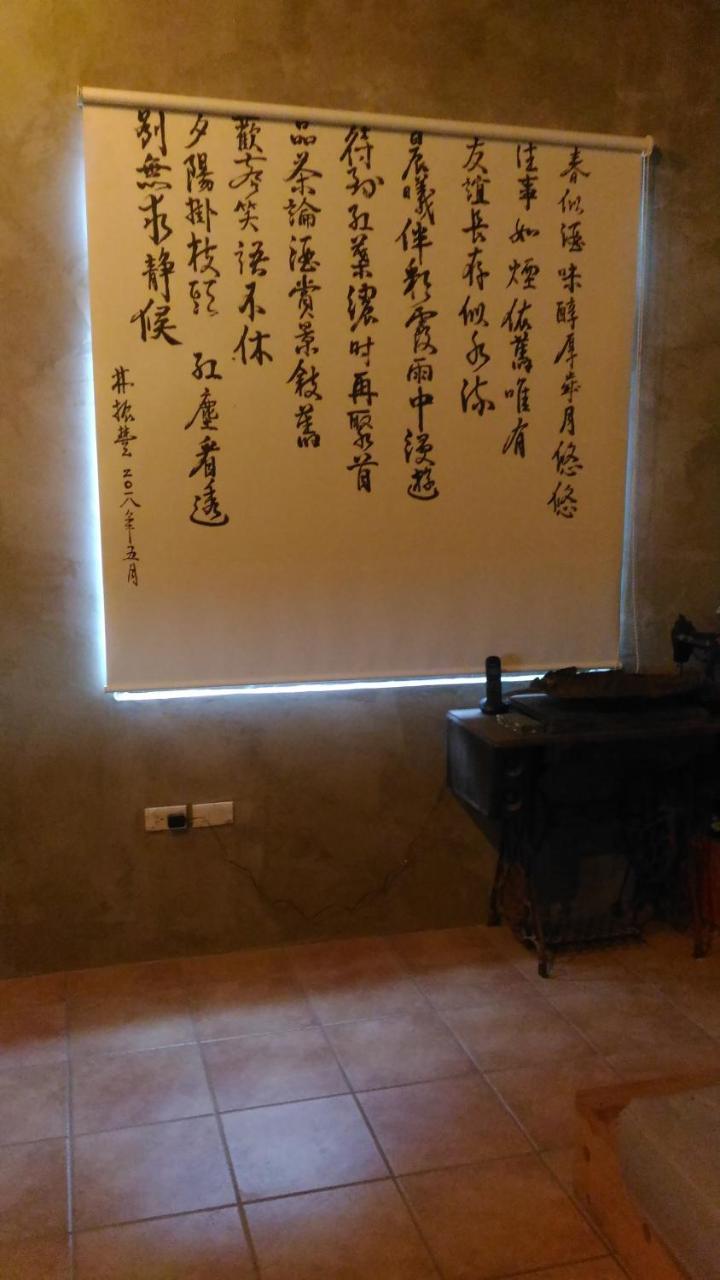 春似酒味醇厚歲月悠悠
往事如煙依舊唯有
友誼長存似水流
晨曦伴彩霞雨中漫遊
待到紅葉濃時再聚首
品茶論酒賞景敍舊
歡容笑語不休
夕陽掛枝頭 紅塵看透
別無求靜候
林振豐二〇一八年五月